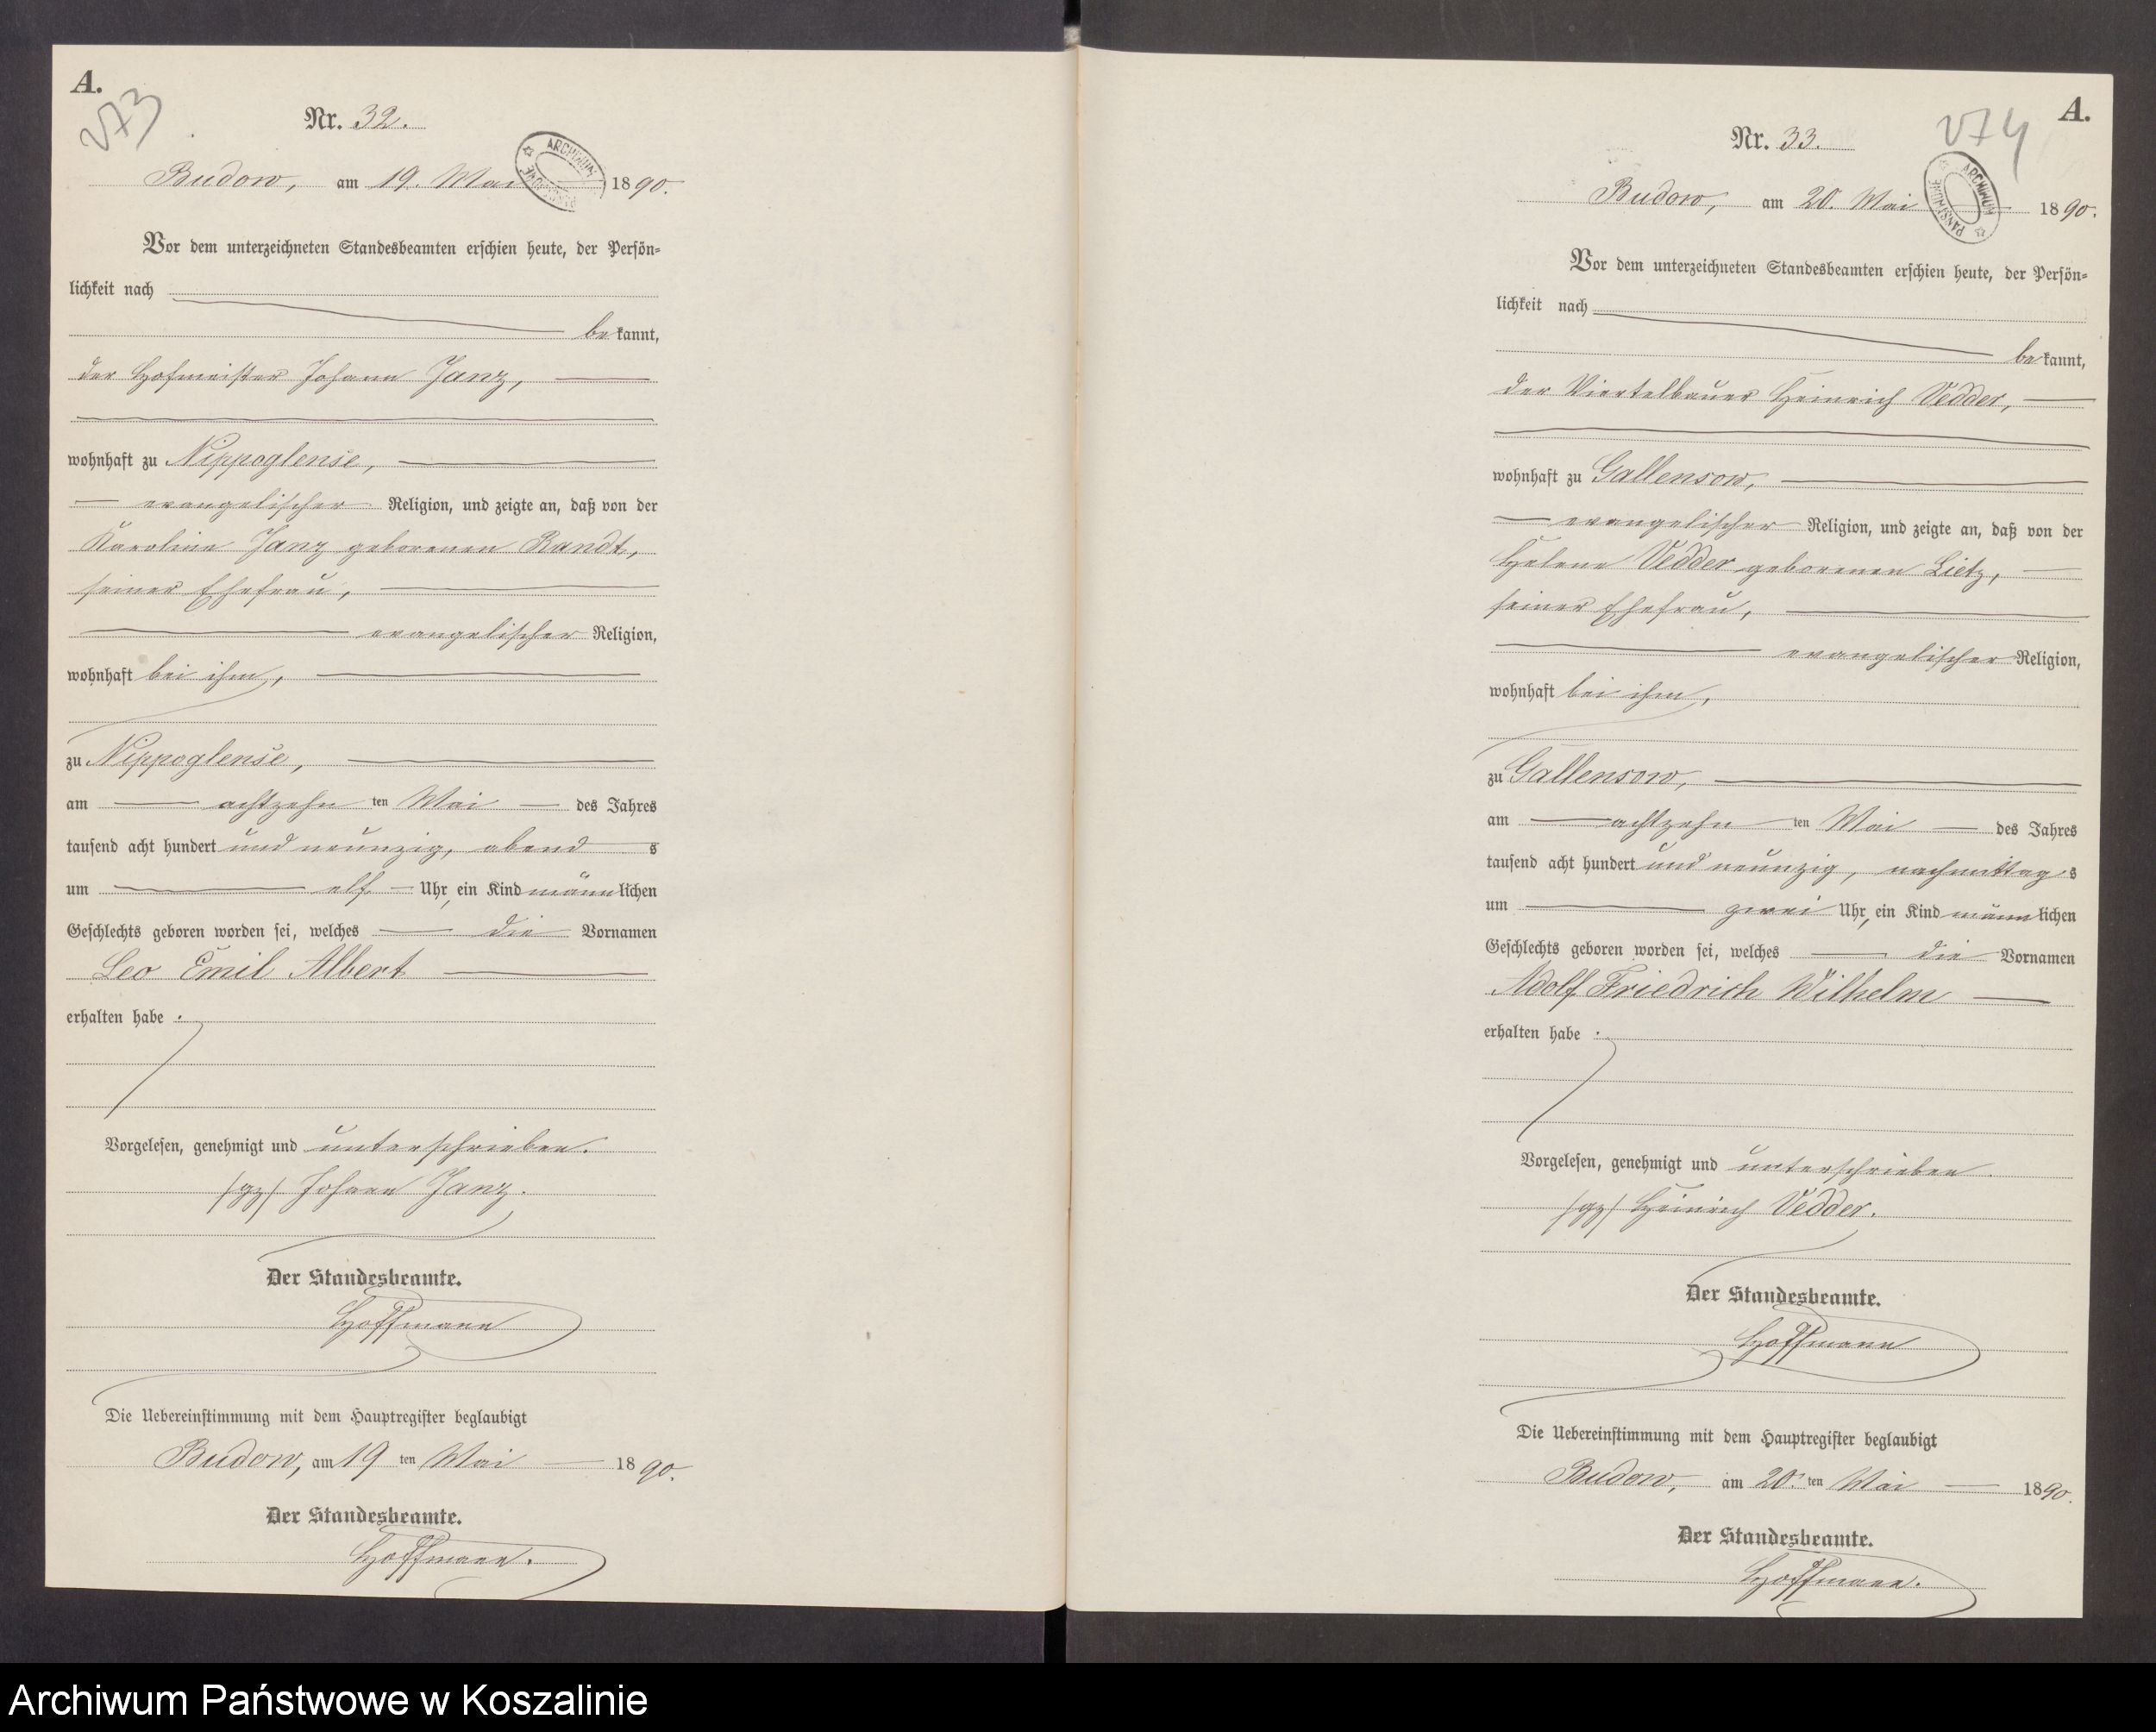 A.
273
Nr. 32.
ARCHIWUM PAŃSTWOWE
Budow, am 19. Mai 1890.
Vor dem unterzeichneten Standesbeamten erschien heute, der Persön-
lichkeit nach
bekannt,
der Hofmeister Johann Janz,
wohnhaft zu Nippoglense,
evangelischer Religion, und zeigte an, daß von der
Karoline Janz geborenen Randt,
seiner Ehefrau,
evangelischer Religion,
wohnhaft bei ihm,
zu Nippoglense,
am achtzehn ten Mai des Jahres
tausend acht hundert und neunzig, abends
um elf Uhr, ein Kind männlichen
Geschlechts geboren worden sei, welches die Vornamen
Leo Emil Albert
erhalten habe.
Vorgelesen, genehmigt und unterschrieben.
/gz/ Johann Janz.
Der Standesbeamte.
Hoffmann
Die Uebereinstimmung mit dem Hauptregister beglaubigt
Budow, am 19 ten Mai 1890.
Der Standesbeamte.
Hoffmann.
A.
274
Nr. 33.
ARCHIWUM PAŃSTWOWE
Budow, am 20. Mai 1890.
Vor dem unterzeichneten Standesbeamten erschien heute, der Persön-
lichkeit nach
bekannt,
der Viertelbauer Heinrich Vedder,
wohnhaft zu Gallensow,
evangelischer Religion, und zeigte an, daß von der
Helene Vedder geborenen Lietz,
seiner Ehefrau,
evangelischer Religion,
wohnhaft bei ihm,
zu Gallensow,
am achtzehn ten Mai des Jahres
tausend acht hundert und neunzig, nachmittags
um zwei Uhr, ein Kind männlichen
Geschlechts geboren worden sei, welches die Vornamen
Adolf Friedrich Wilhelm
erhalten habe.
Vorgelesen, genehmigt und unterschrieben.
/gz/ Heinrich Vedder.
Der Standesbeamte.
Hoffmann
Die Uebereinstimmung mit dem Hauptregister beglaubigt
Budow, am 20. ten Mai 1890.
Der Standesbeamte.
Hoffmann.
Archiwum Państwowe w Koszalinie